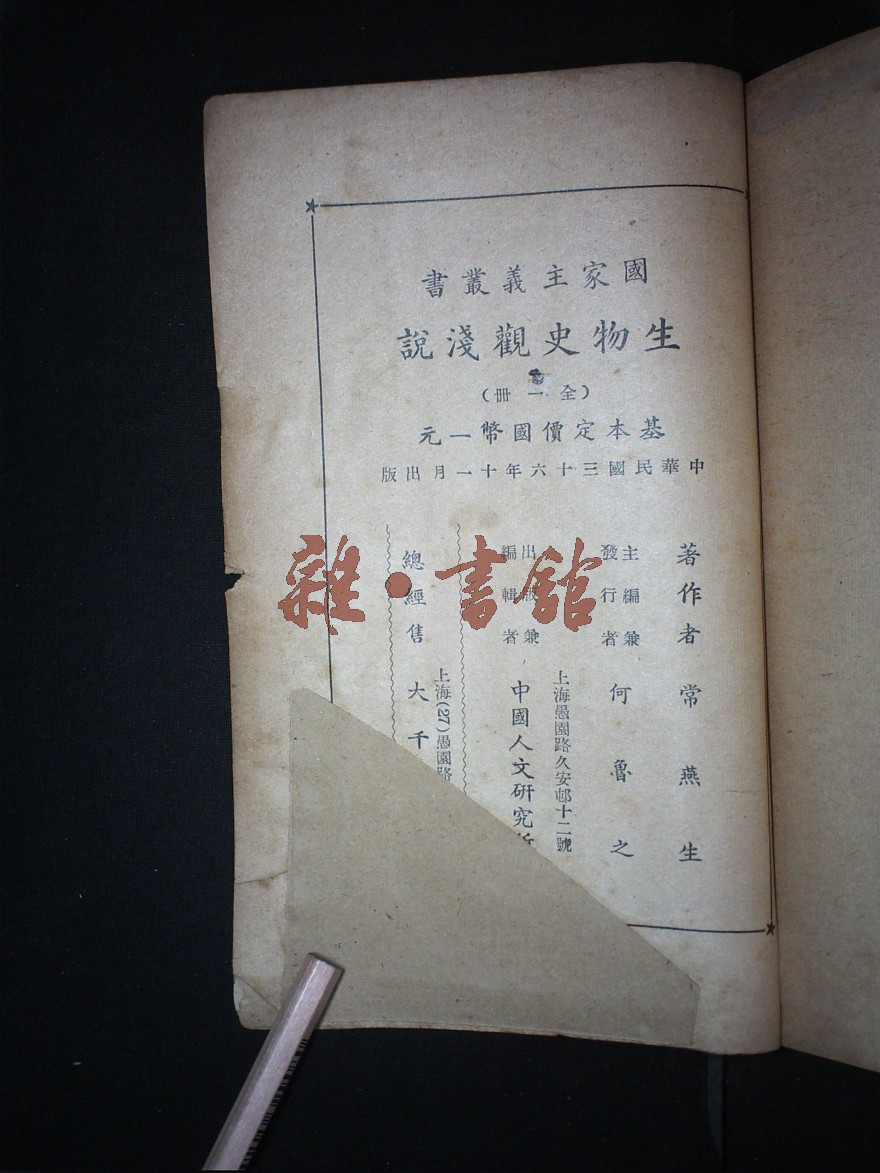 國家主義叢書
生物史觀淺說
（全一册）
基本定價國幣一元
中華民國三十六年十一月出版
著作者 常燕生
主編兼
發行者 何魯之
上海愚園路久安邨十二號
出版兼
編輯者 中國人文研究所
上海(27)愚園路
總經售 大千
雜·書館